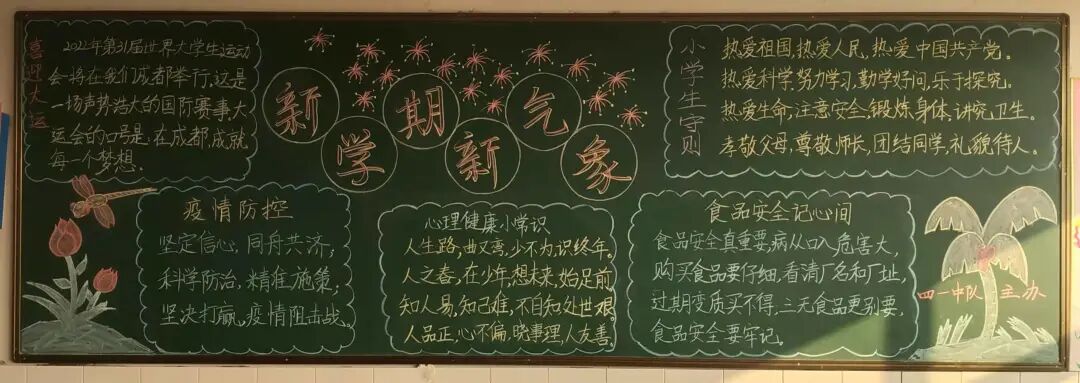 喜迎大运
2022年第31届世界大学生运动
会将在我们成都举行,这是
一场声势浩大的国际赛事,大
运会的口号是:在成都,成就
每一个梦想.
新学期新气象
小学生守则
热爱祖国,热爱人民,热爱中国共产党。
热爱科学,努力学习,勤学好问,乐于探究。
热爱生命,注意安全,锻炼身体,讲究卫生。
孝敬父母,尊敬师长,团结同学,礼貌待人。
疫情防控
坚定信心,同舟共济;
科学防治,精准施策;
坚决打赢,疫情阻击战。
心理健康小常识
人生路,曲又弯,少不为,识终年。
人之春,在少年,想未来,始足前
知人易,知己难,不自知,处世艰。
人品正,心不偏,晓事理,人友善。
食品安全记心间
食品安全真重要,病从口入危害大,
购买食品要仔细,看清厂名和厂址,
过期变质买不得,二无食品更别要,
食品安全要牢记。
四一中队 主办